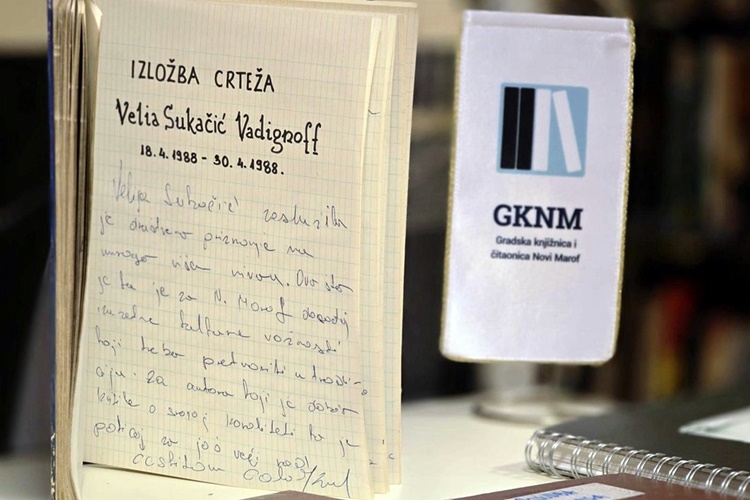 IZLOŽBA CRTEŽA
Velia Sukačić Vadignoff
18.4.1988 - 30.4.1988.
Velja Sukačić zaslužila
je društveno priznanje na
mnogo višem nivou. Ovo što
je tu je za N. Marof događaj
izuzetne kulturne važnosti
koji treba pretvoriti u tradi-
ciju. Za autora koji je dobio
kritike o svojoj kvaliteti to je
poticaj za još veći rad
čestitam
GKNM
Gradska knjižnica i
čitaonica Novi Marof